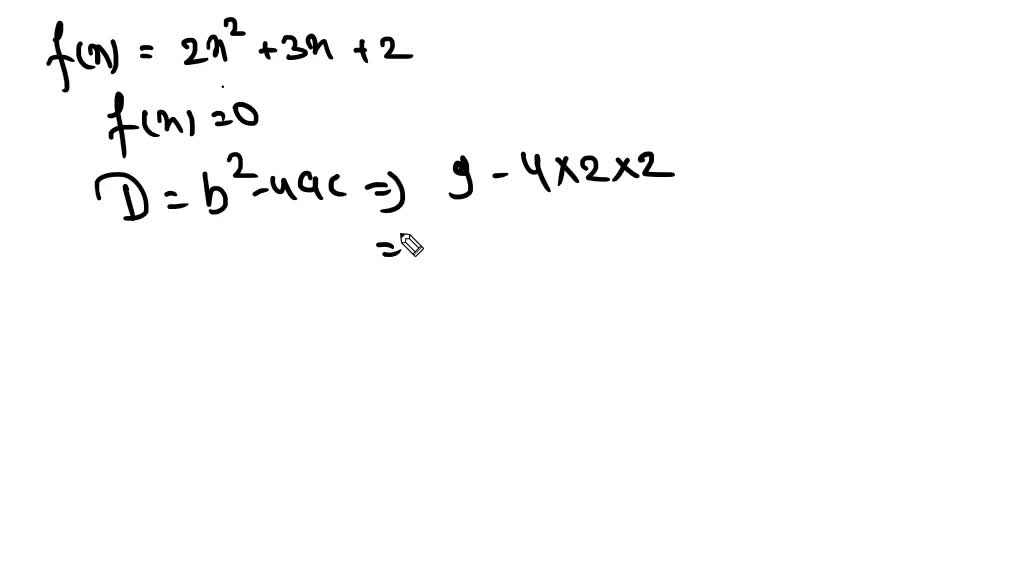 f(x) = 2x² + 3x + 2
f(x) = 0
D = b² - 4ac => 9 - 4×2×2
=